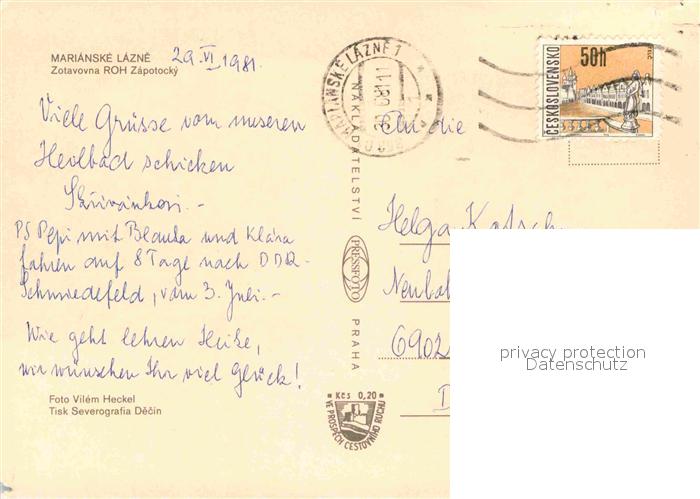 MARIÁNSKÉ LÁZNĚ
Zotavovna ROH Zápotocký
29.VI.1981.
Viele Grüsse vom unseren
Heilbad schicken
Skřivánkovi.-
PS Pepi mit Blanka und Klára
fahren auf 8 Tage nach DDR-
Schmiedefeld, vom 3. Juli.-
Wie geht Ihren Heike,
wir wünschen Ihr viel Glück!
Foto Vilém Heckel
Tisk Severografia Děčín
MARIÁNSKÉ LÁZNĚ 1
NAKLADATELSTVÍ
PRESSFOTO
PRAHA
Kčs 0,20
VE PROSPĚCH CESTOVNÍHO RUCHU
ČESKOSLOVENSKO
50h
An die
Helga
6902
privacy protection
Datenschutz